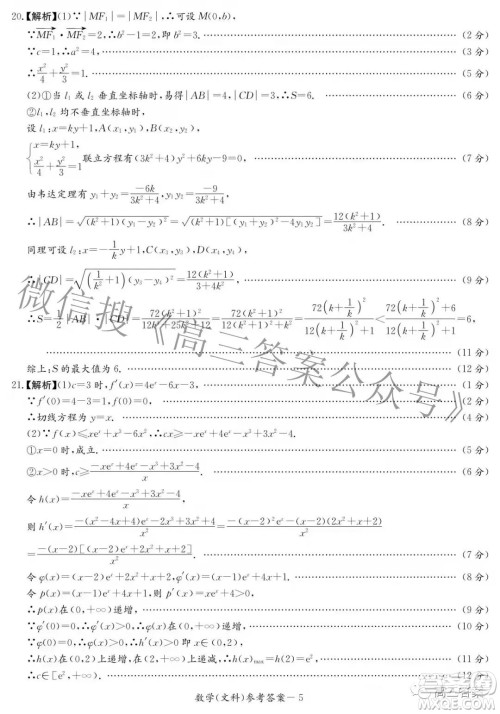 20.【解析】(1)∵|MF₁|=|MF₂|,∴可设M(0,b),
∵MF₁·MF₂=2,∴b²-1=2,即b²=3. (2分)
∵c=1,∴a²=4, (3分)
∴x²/4+y²/3=1. (5分)
(2)①当l₁或l₂垂直坐标轴时,易得|AB|=4,|CD|=3,∴S=6. (6分)
②l₁,l₂均不垂直坐标轴时,
设l₁:x=ky+1,A(x₁,y₁),B(x₂,y₂),
{x=ky+1, x²/4+y²/3=1 联立方程有(3k²+4)y²+6ky-9=0, (7分)
由韦达定理有y₁+y₂=-6k/(3k²+4),y₁y₂=-9/(3k²+4).
∴|AB|=√((k²+1)(y₁-y₂)²)=√((k²+1)[(y₁+y₂)²-4y₁y₂])=12(k²+1)/(3k²+4). (8分)
同理可设l₂:x=-(1/k)y+1,C(x₃,y₃),D(x₄,y₄),
∴|CD|=√((1/k²+1)(y₃-y₄)²)=12(k²+1)/(3+4k²). (9分)
∴S=1/2|AB|·|CD|=72(k²+1)²/(12k⁴+25k²+12)=72(k+1/k)²/(12(k+1/k)²+1)<72(k+1/k)²/(12(k+1/k)²)=6
(11分)
综上,S的最大值为6. (12分)
21.【解析】(1)c=3时,f′(x)=4eˣ-6x-3, (1分)
∵f′(0)=4-3=1,f(0)=0, (2分)
∴切线方程为y=x. (4分)
(2)∵f(x)≤xeˣ+x³-6x²,∴cx≥-xeˣ+4eˣ-x³+3x²-4,
①x=0时,成立. (5分)
②x>0时,c≥(-xeˣ+4eˣ-x³+3x²-4)/x,
令h(x)=(-xeˣ+4eˣ-x³+3x²-4)/x, (6分)
则h′(x)=(-(x²-4x+4)eˣ-2x³+3x²+4)/x²=(-(x-2)²eˣ-(x-2)(2x²+x+2))/x²
=-(x-2)[(x-2)eˣ+2x²+x+2]/x². (7分)
令φ(x)=(x-2)eˣ+2x²+x+2,φ′(x)=(x-1)eˣ+4x+1. (8分)
令p(x)=(x-1)eˣ+4x+1,则p′(x)=xeˣ+4>0,
∴p(x)在(0,+∞)递增, (9分)
∵φ′(0)=0,∴φ′(x)>0,∴φ(x)在(0,+∞)递增, (10分)
∵φ(0)=0,∴φ(x)>0,∴h′(x)>0即x∈(0,2),
∴h(x)在(0,2)上递增,在(2,+∞)上递减,∴h(x)max=h(2)=e², (11分)
∴c∈[e²,+∞). (12分)
微信搜《高三答案公众号》
数学(文科)参考答案-5